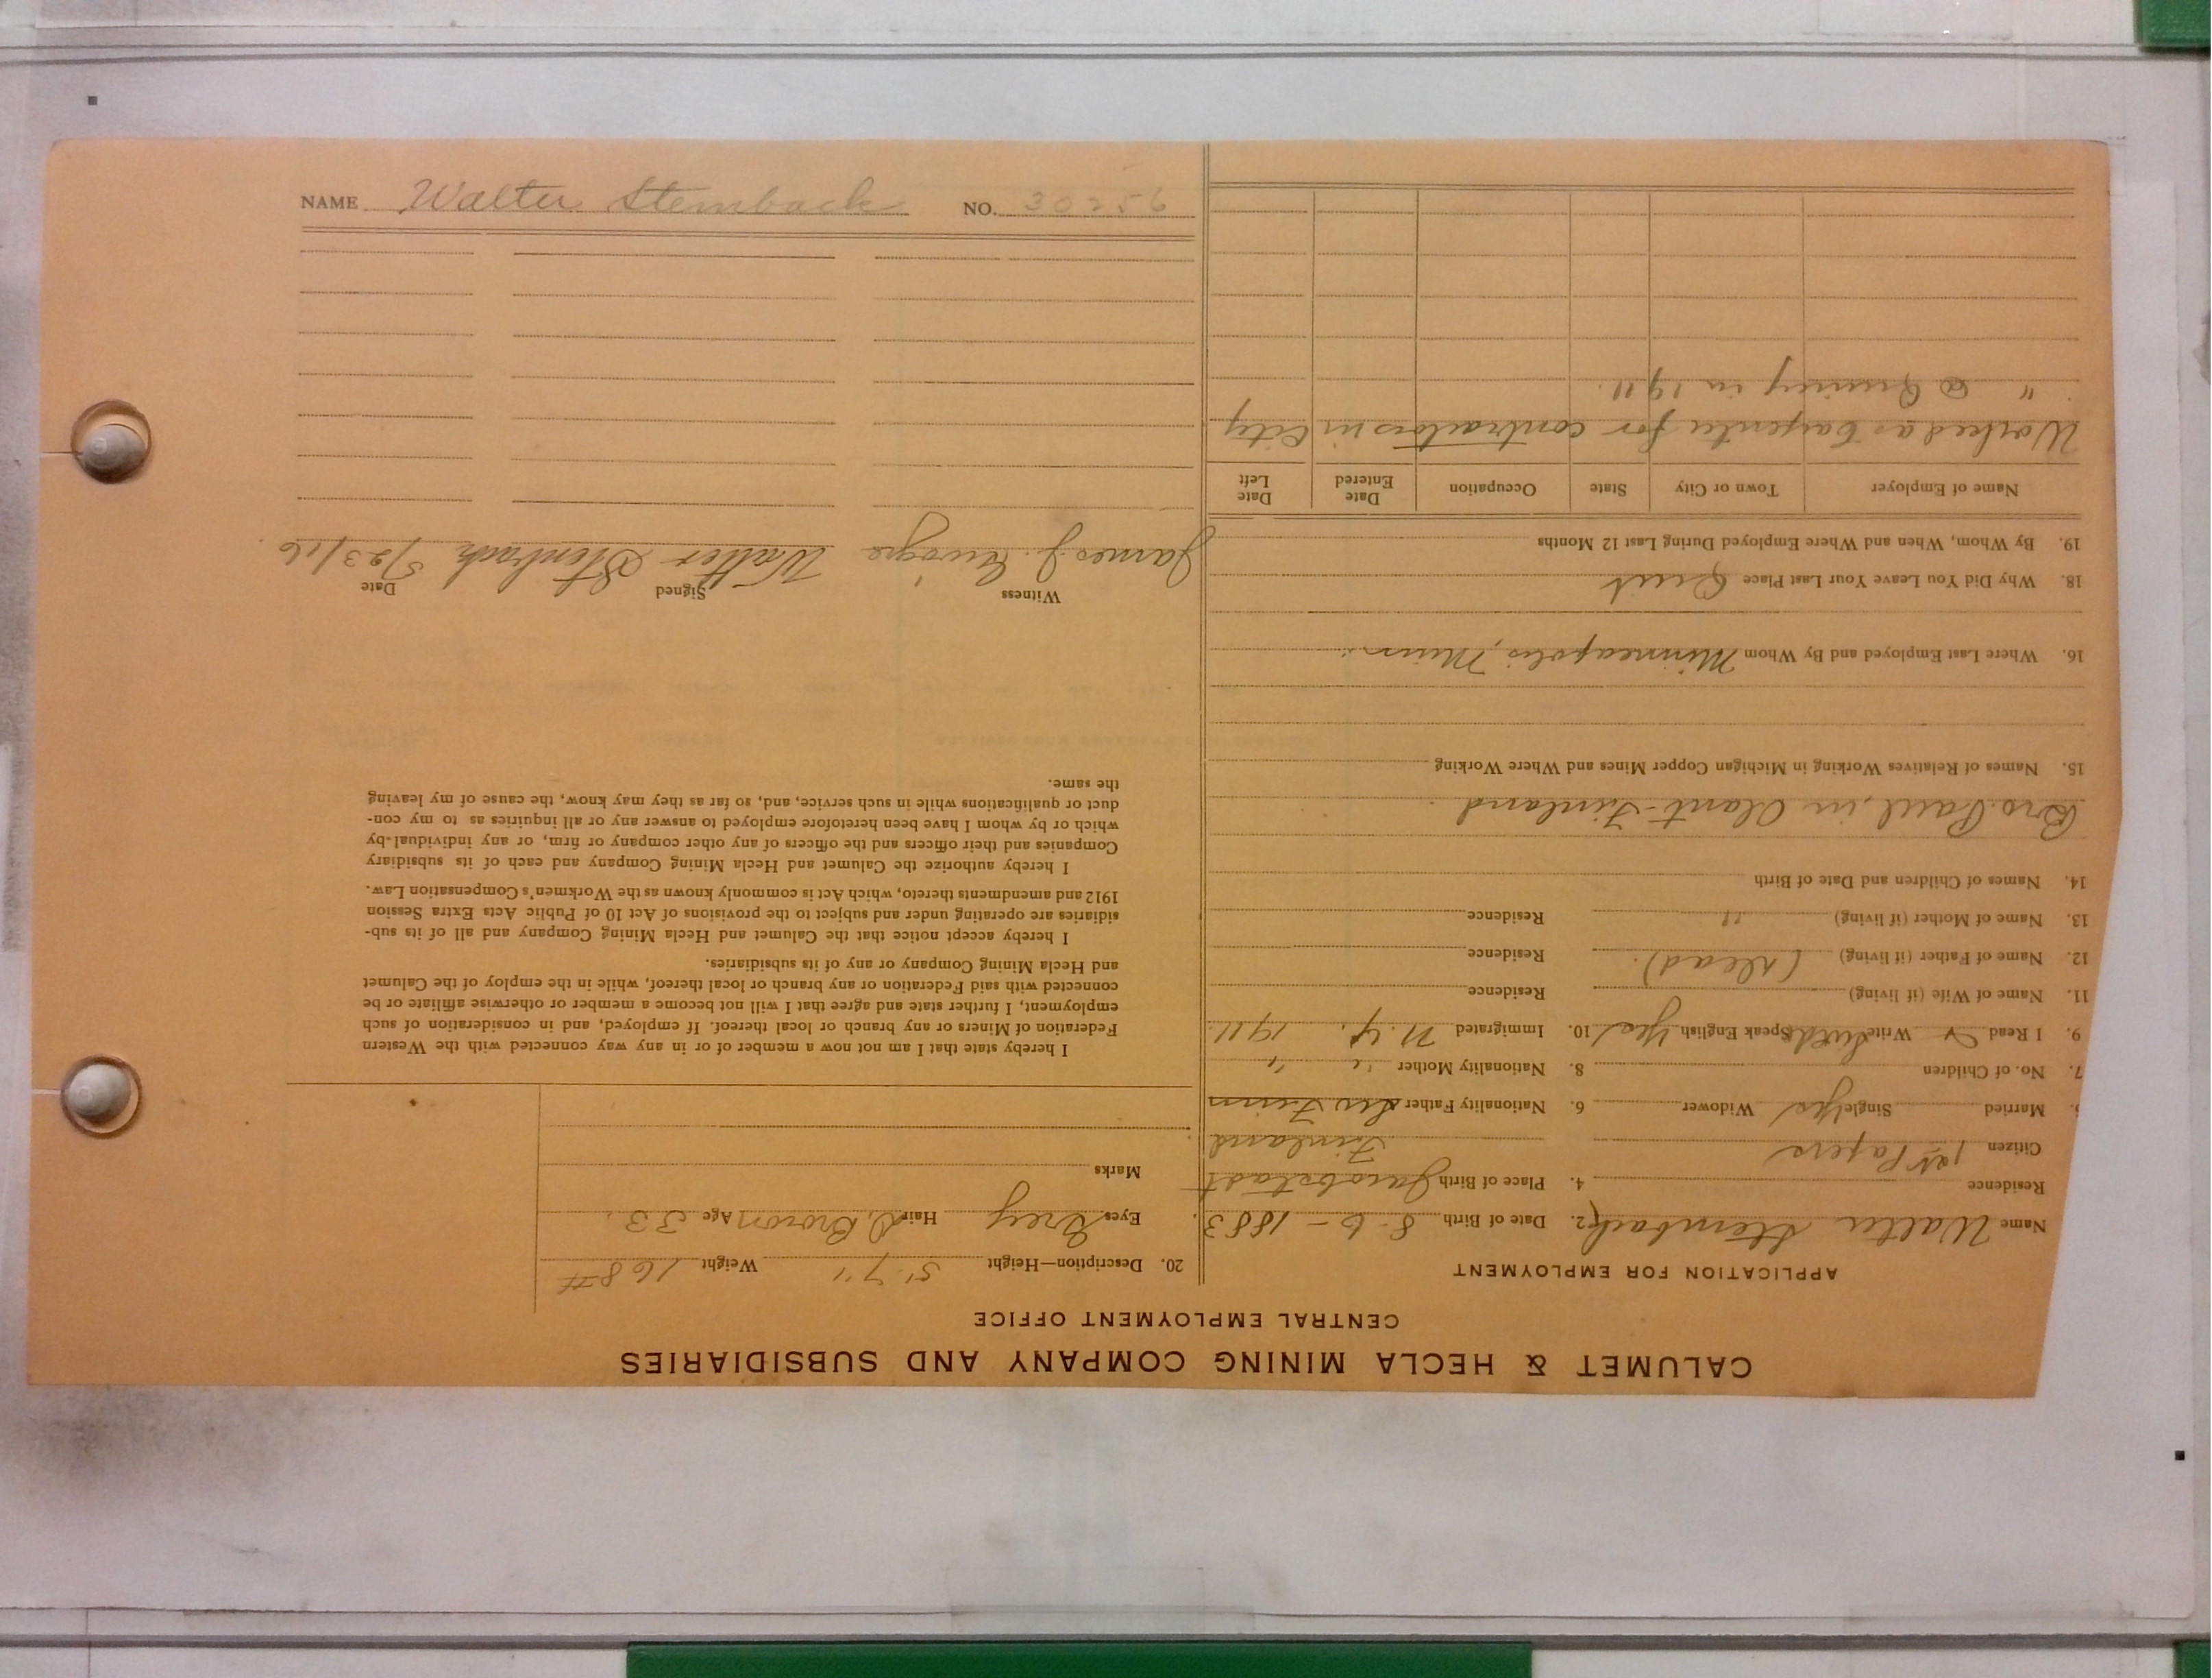 NAME Walter Stenback NO. 30256
CALUMET & HECLA MINING COMPANY AND SUBSIDIARIES
CENTRAL EMPLOYMENT OFFICE
APPLICATION FOR EMPLOYMENT
Name Walter Stenback 2. Date of Birth 8-6-1883
Residence 4. Place of Birth
Citizen 1st Papers Finland
Married Single Yes Widower 6. Nationality Father Finn
7. No. of Children 8. Nationality Mother " "
9. I Read Write Speak English Yes 10. Immigrated N.Y. 1911
11. Name of Wife (if living) Residence
12. Name of Father (if living) (dead) Residence
13. Name of Mother (if living) " Residence
14. Names of Children and Date of Birth
Bro. Paul, in Finland
15. Names of Relatives Working in Michigan Copper Mines and Where Working
16. Where Last Employed and By Whom Minneapolis, Minn.
18. Why Did You Leave Your Last Place Quit
19. By Whom, When and Where Employed During Last 12 Months
Name of Employer Town or City State Occupation Date Entered Date Left
Worked as Carpenter for contractors in City
" @ Quincy in 1911.
20. Description—Height 5' 7" Weight 168#
Eyes Grey Hair D. Brown Age 33.
Marks
I hereby state that I am not now a member of or in any way connected with the Western
Federation of Miners or any branch or local thereof. If employed, and in consideration of such
employment, I further state and agree that I will not become a member or otherwise affiliate or be
connected with said Federation or any branch or local thereof, while in the employ of the Calumet
and Hecla Mining Company or any of its subsidiaries.
I hereby accept notice that the Calumet and Hecla Mining Company and all of its sub-
sidiaries are operating under and subject to the provisions of Act 10 of Public Acts Extra Session
1912 and amendments thereto, which Act is commonly known as the Workmen's Compensation Law.
I hereby authorize the Calumet and Hecla Mining Company and each of its subsidiary
Companies and their officers and the officers of any other company or firm, or any individual-by
which or by whom I have been heretofore employed to answer any or all inquiries as to my con-
duct or qualifications while in such service, and, so far as they may know, the cause of my leaving
the same.
Witness Signed Date
James J. Walter Stenback 5/23/16